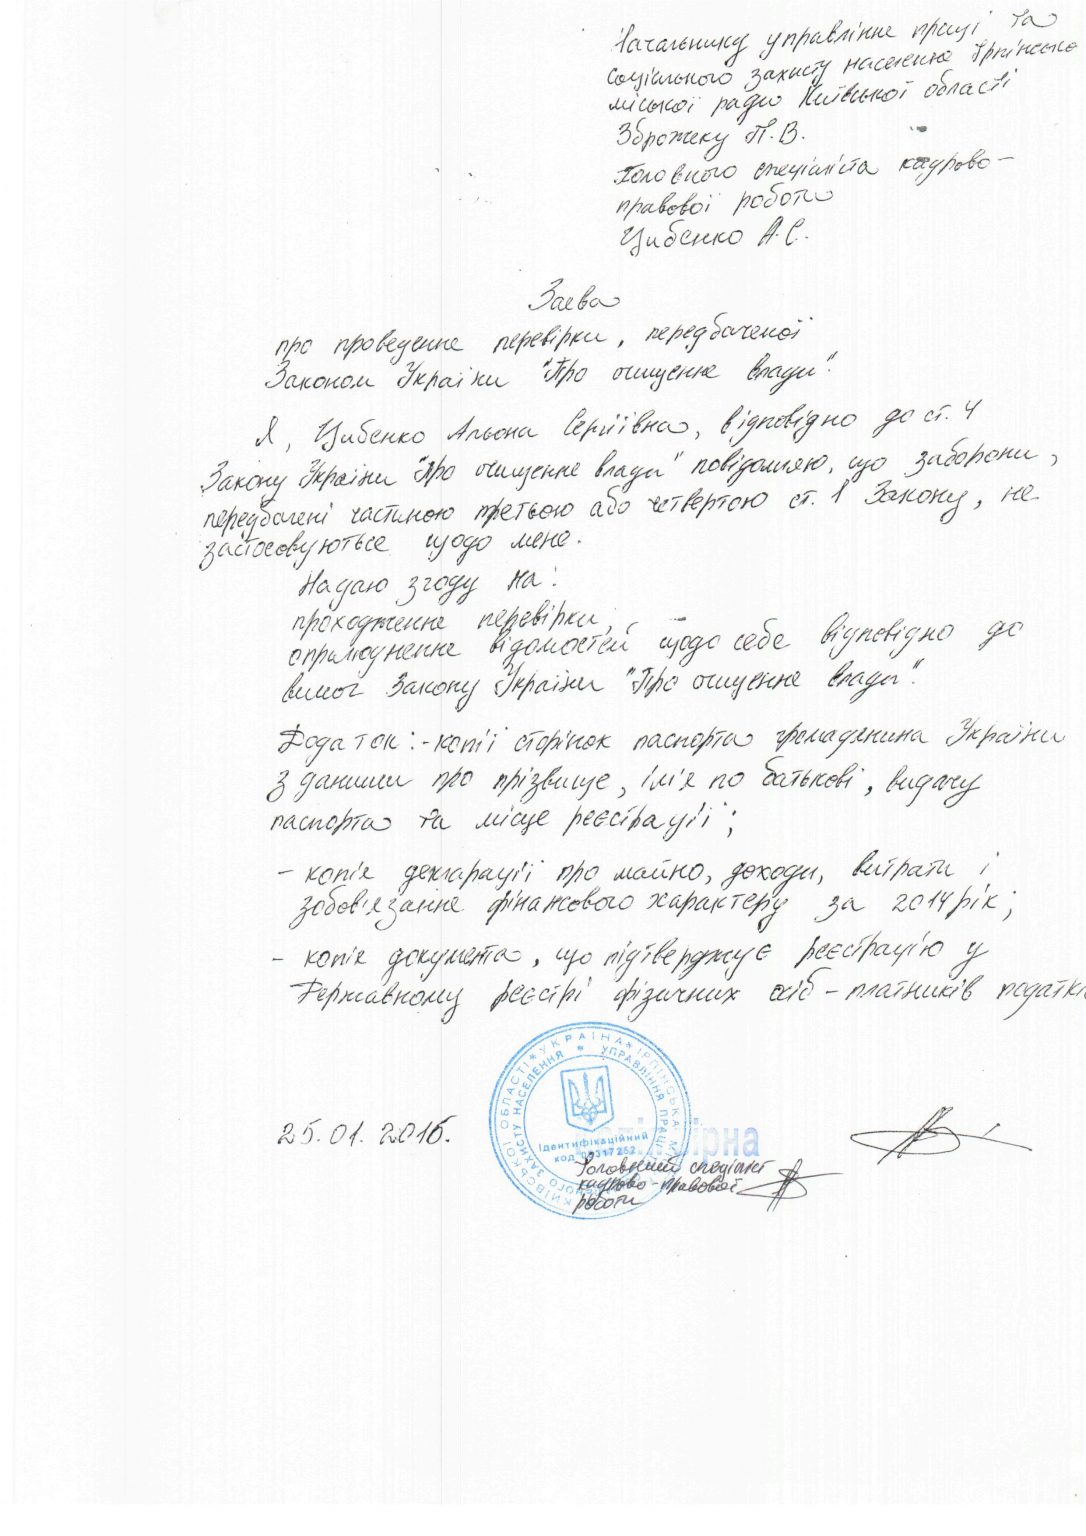 Начальнику управління праці та
соціального захисту населення Ірпінсько
міської ради Київської області
Зброжеку П.В.
головного спеціаліста кадрово-
правової роботи
Цибенко А.С.
Заява
про проведення перевірки, передбаченої
Законом України "Про очищення влади".
Я, Цибенко Альона Сергіївна, відповідно до ст. 4
Закону України "Про очищення влади" повідомляю, що заборони,
передбачені частиною третьою або четвертою ст. 1 Закону, не
застосовуються щодо мене.
Надаю згоду на:
проходження перевірки,
оприлюднення відомостей щодо себе відповідно до
вимог Закону України "Про очищення влади".
Додаток:-копії сторінок паспорта громадянина України
з даними про прізвище, ім'я по батькові, видачу
паспорта та місце реєстрації;
- копія декларації про майно, доходи, витрати і
зобов'язання фінансового характеру за 2014 рік;
- копія документа, що підтверджує реєстрацію у
Державному реєстрі фізичних осіб - платників податкі
УКРАЇНА * ІРПІНСЬКА МІ КИЇВСЬКОЇ ОБЛАСТІ *
* УПРАВЛІННЯ ПРАЦІ ЗАХИСТУ НАСЕЛЕННЯ
Ідентифікаційний
код
25.01.2016.
вірна
Головний спеціаліст
кадрово-правової
роботи